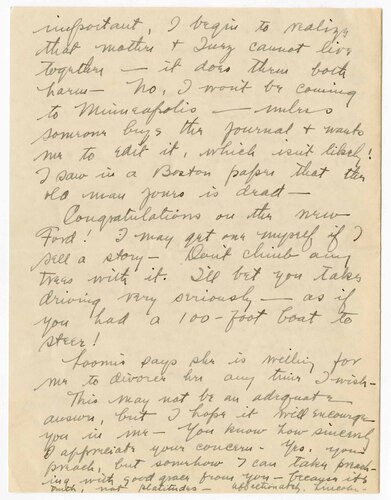 important, I begin to realize
that mother & Inez cannot live
together — it does them both
harm — No, I won't be coming
to Minneapolis — unless
someone buys the Journal & wants
me to edit it, which isn't likely!
I saw in a Boston paper that the
old man Jones is dead —
Congratulations on the new
Ford! I may get one myself if I
sell a story — Don't climb any
trees with it. I'll bet you take
driving very seriously — as if
you had a 100-foot boat to
steer!
Loomis says she is willing for
me to divorce her any time I wish —
This may not be an adequate
answer, but I hope it will encourage
you in me — You know how sincerely
I appreciate your concern — Yes, you
preach, but somehow I can take preach-
ing with good grace from you — because it's
not platitudes — affectionately,